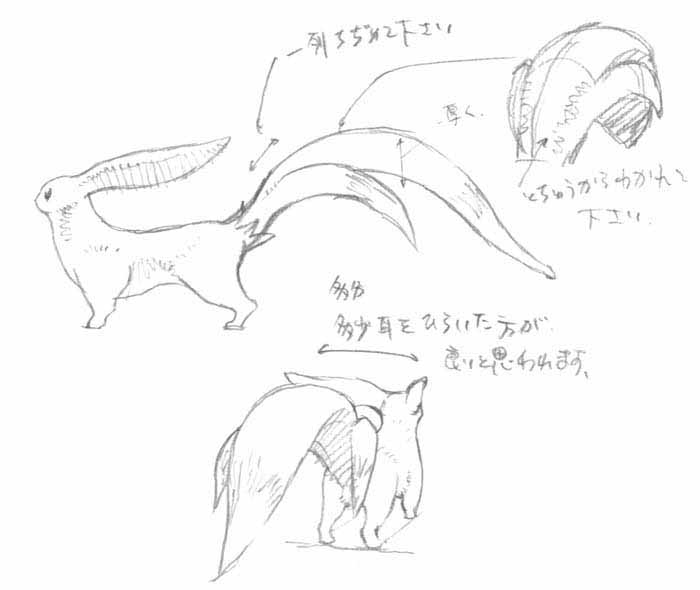 一列ちぢめて下さい
厚く.
とちゅうからわかれて
下さい.
多分
多少耳をひらいた方が
良いと思われます。